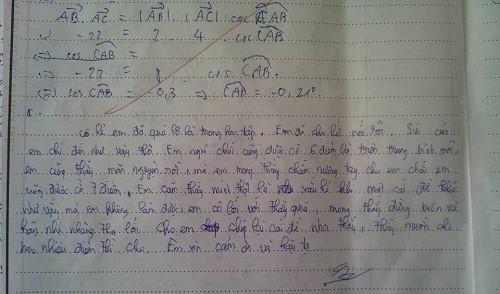 AB. AC = |AB| . |AC| cos CAB
- 22 = 2 4 cos CAB
<=> cos CAB =
<=> - 22 = 8 cos CAB
<=> cos CAB = -0,3 => CAB = -0,21°
có lẽ em đã quá lơ là trong học tập. Em đã cố hết rồi. Sức của
em chỉ đến như vậy thôi. Em nghĩ chắc cũng được cỡ 6 điểm là trên trung bình rồi
em cũng thấy mãn nguyện rồi, mà em mong thầy chấm nương tay cho em chắc em
cũng được cỡ 7 điểm. Em cảm thấy mình thật là xấu hổ khi một cái đề khó
như vậy mà em không làm được, em có lỗi với thầy quá, mong thầy đừng buồn và
hãy nhẹ nhàng tha lỗi cho em. Giúp lại cái đề nha thầy, thầy muốn cho
bao nhiêu điểm thì cho. Em xin cám ơn và hậu tạ